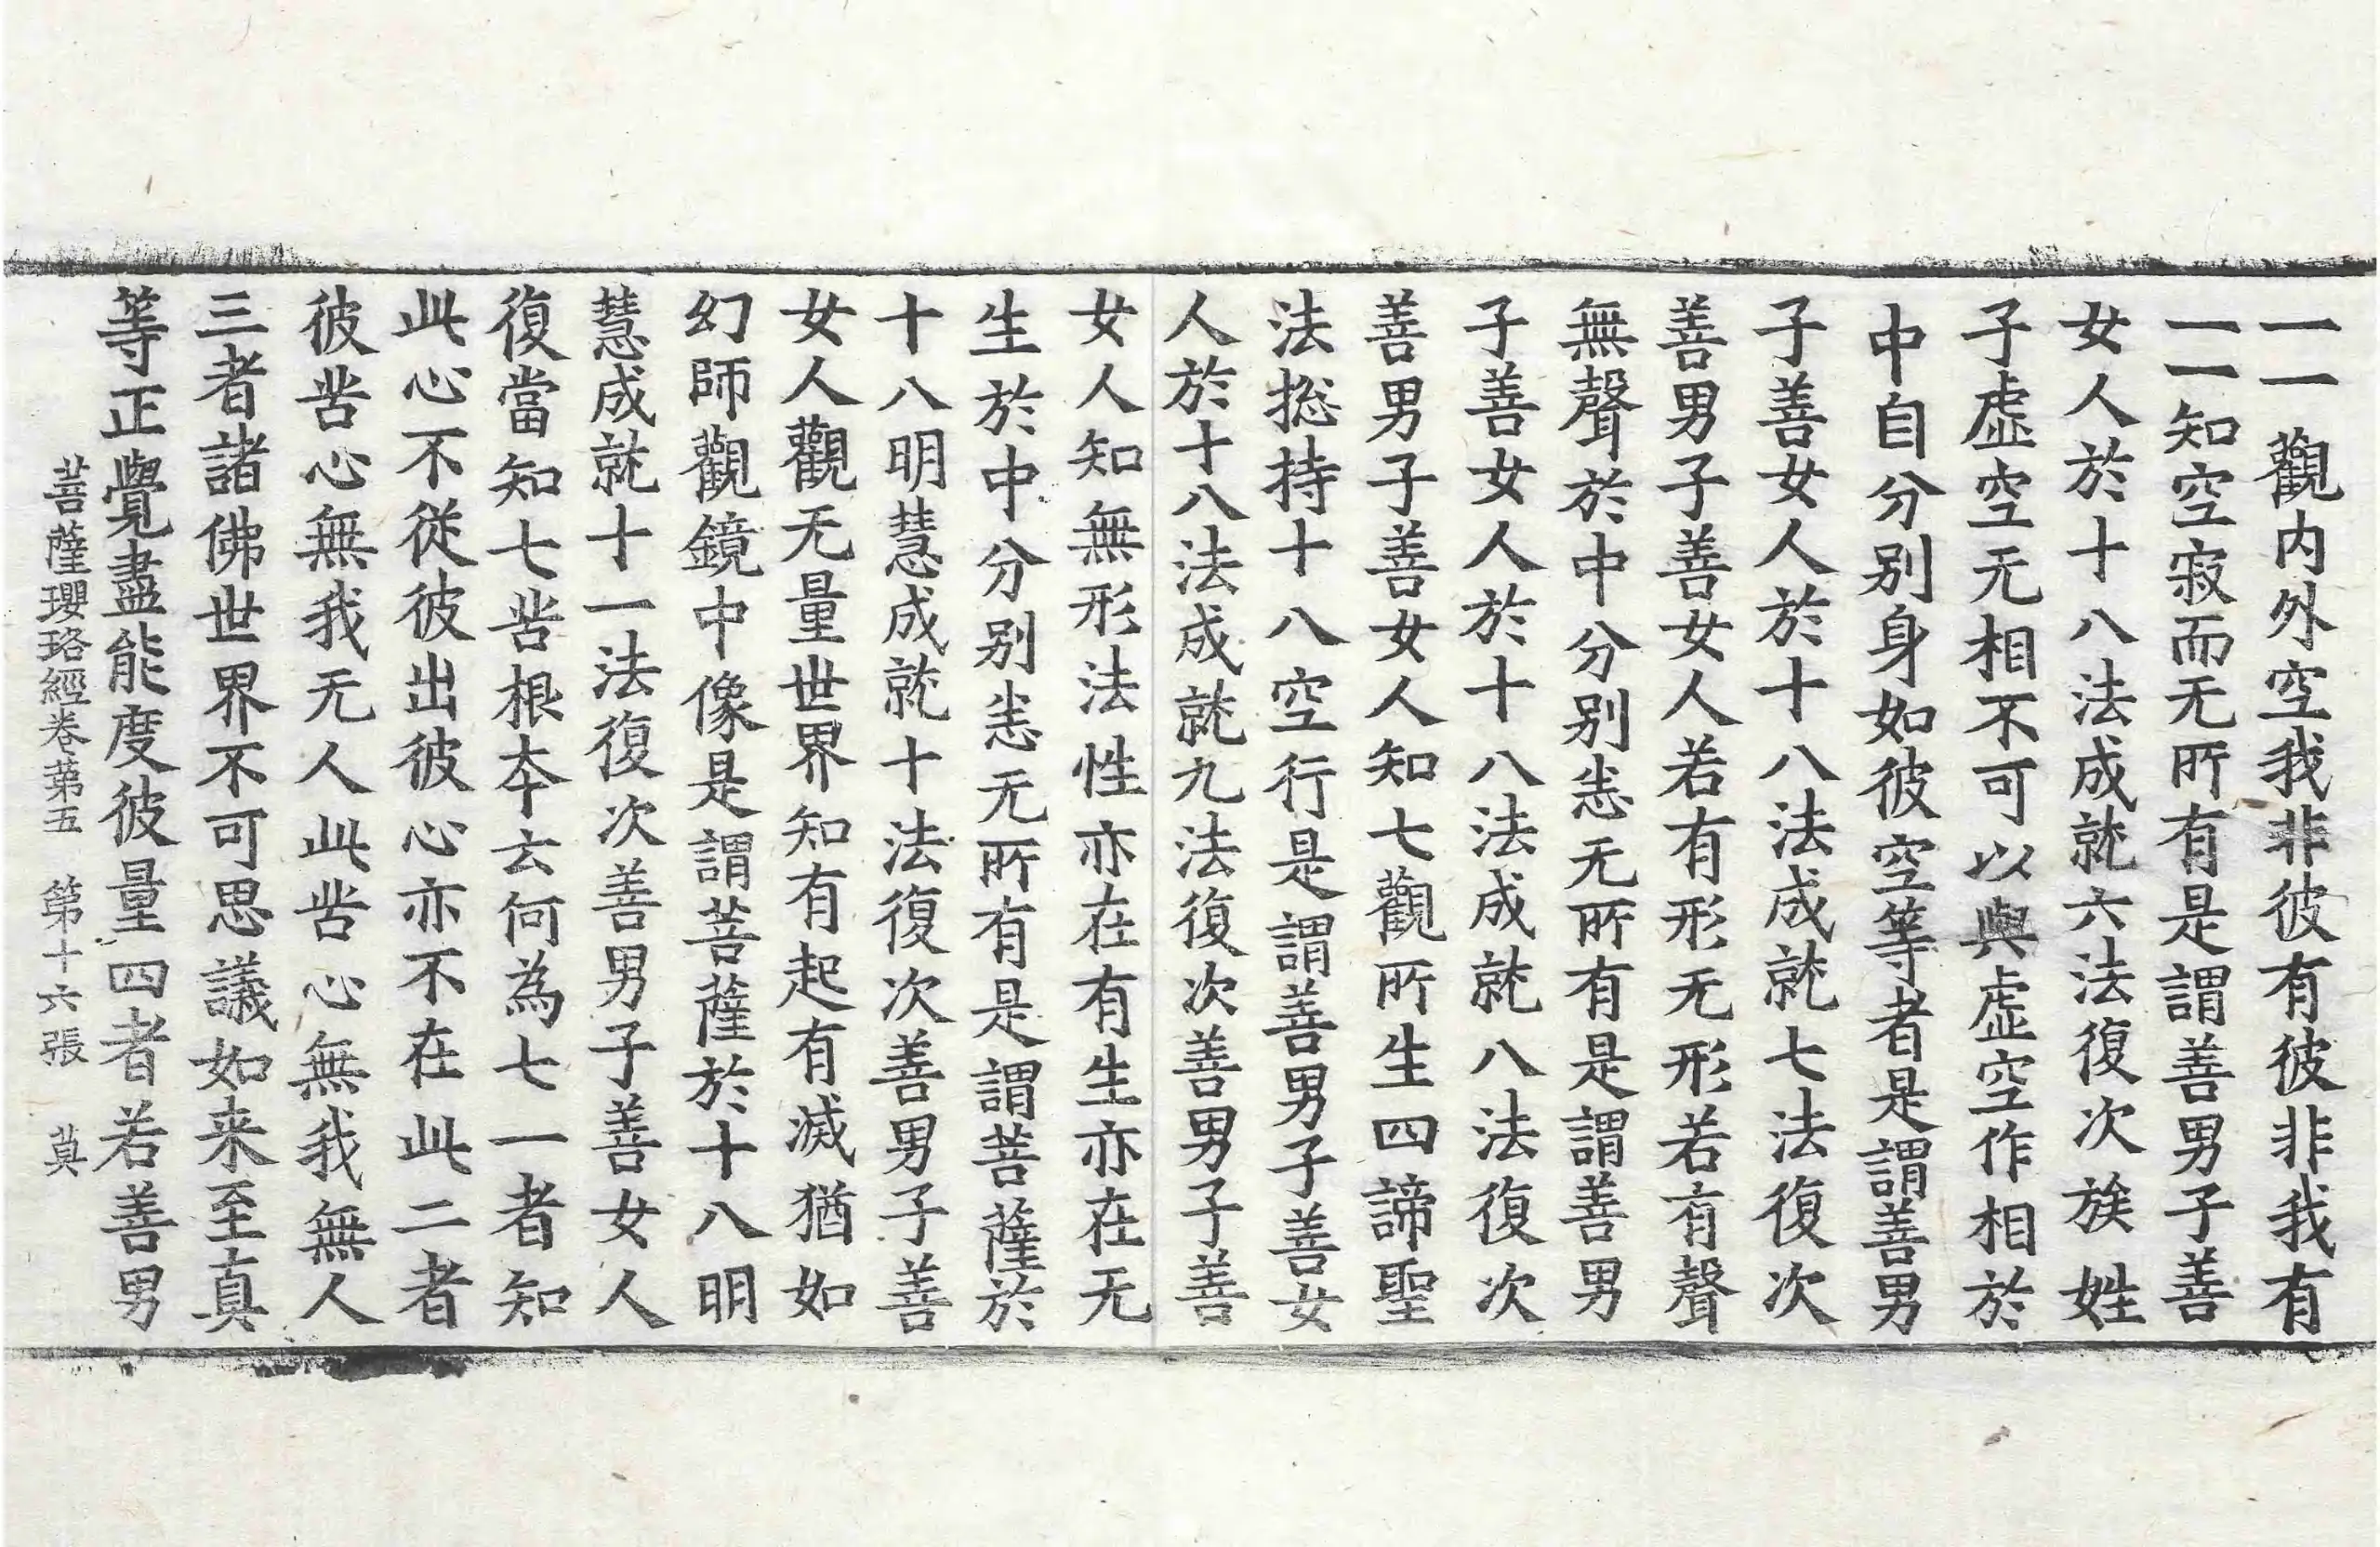 一一觀内外空我非彼有彼非我有
一一知空寂而无所有是謂善男子善
女人於十八法成就六法復次族姓
子虛空无相不可以與虛空作相於
中自分别身如彼空等者是謂善男
子善女人於十八法成就七法復次
善男子善女人若有形无形若有聲
無聲於中分别恙无所有是謂善男
子善女人於十八法成就八法復次
善男子善女人知七觀所生四諦聖
法捴持十八空行是謂善男子善女
人於十八法成就九法復次善男子善
女人知無形法性亦在有生亦在无
生於中分别恙无所有是謂菩薩於
十八明慧成就十法復次善男子善
女人觀无量世界知有起有滅猶如
幻師觀鏡中像是謂菩薩於十八明
慧成就十一法復次善男子善女人
復當知七苦根夲云何為七一者知
此心不從彼出彼心亦不在此二者
彼苦心無我无人此苦心無我無人
三者諸佛世界不可思議如来至真
等正覺盡能度彼量四者若善男
菩薩瓔珞經卷苐五　第十六張　莫